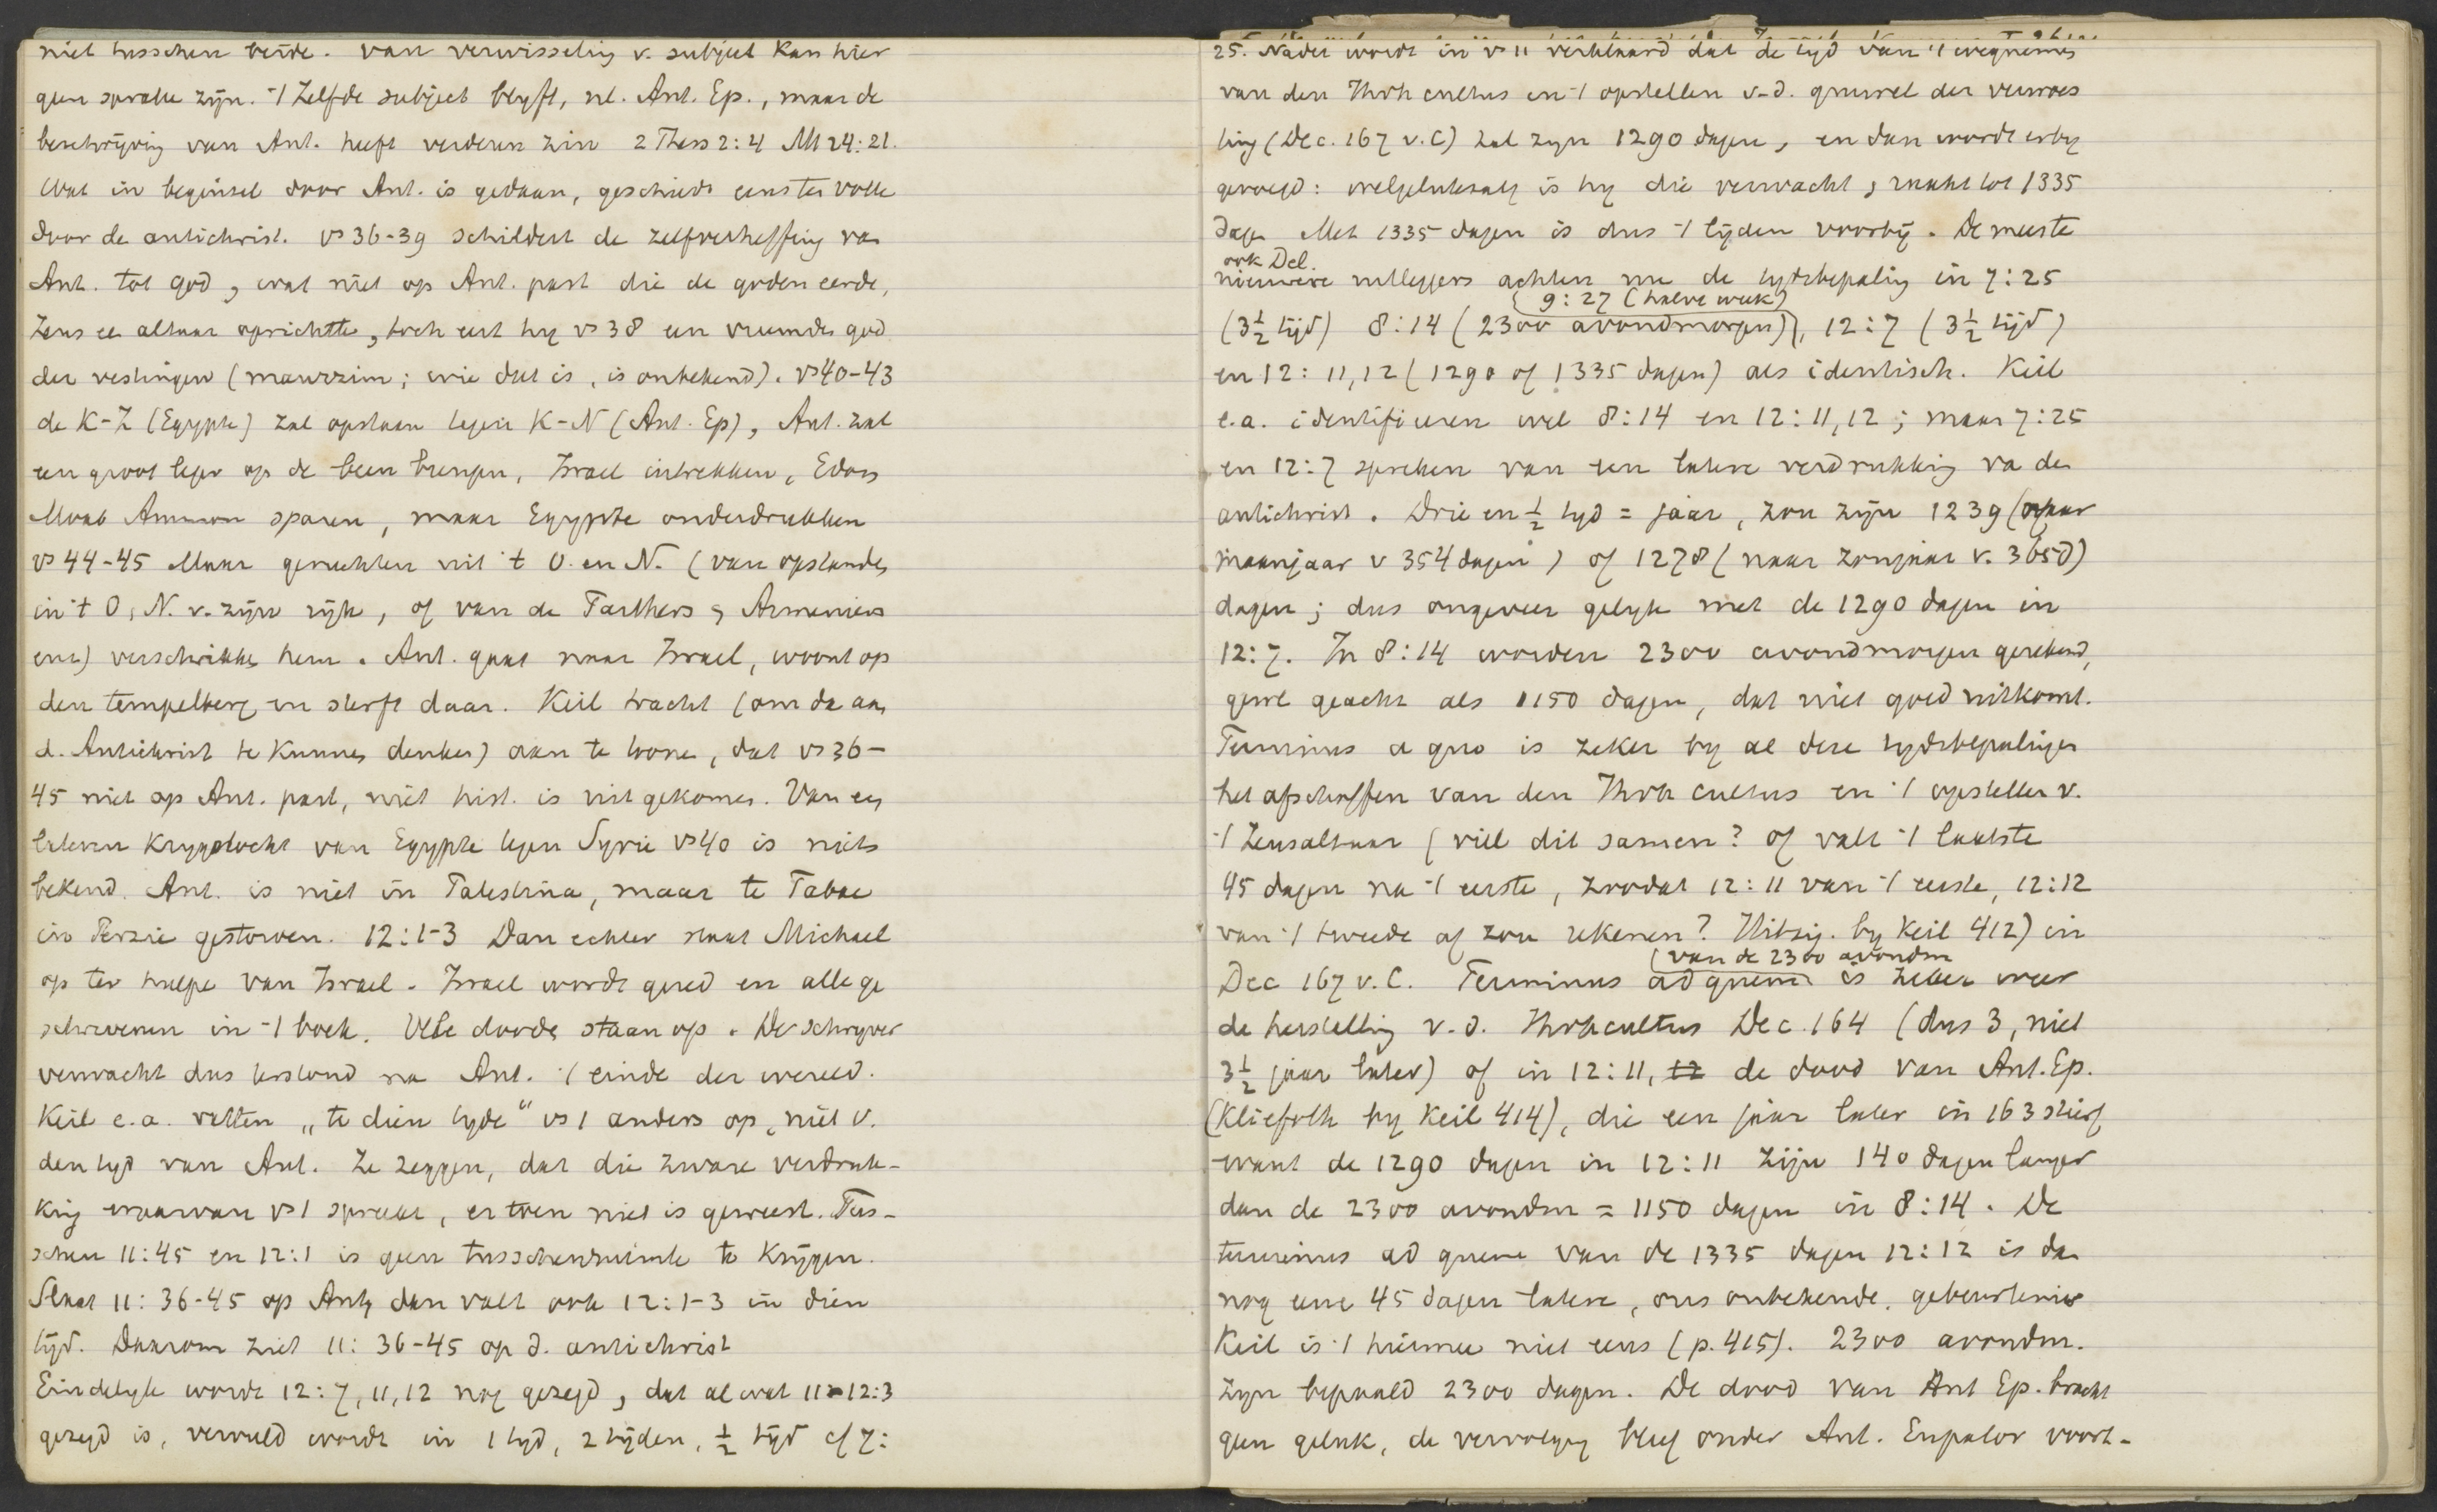 niet tusschen beide. van verwisseling v. subject kan hier
geen sprake zijn. 't Zelfde subject blyft, nl. Ant. Ep., maar de
beschrijving van Ant. heeft verderen zin 2 Thess 2:4 Mt 24:21.
Wat in beginsel door Ant. is gedaan, geschiedt eens ten volle
door de antichrist. vs 36-39 schildert de zelfverheffing van
Ant. tot god, wat niet op Ant. past die de goden eerde,
Zeus een altaar oprichtte, toch eert hy vs 38 een vreemde god
der vestingen (mauzzim; wie dat is, is onbekend). vs 40-43
de K-Z (Egypte) zal opstaan tegen K-N (Ant. Ep), Ant. zal
een groot leger op de been brengen, Israel intrekken, Edom
Moab Ammon sparen, maar Egypte onderdrukken
vs 44-45 Maar geruchten uit 't O. en N. (van opstanden
in 't O, N. v. zijn rijk, of van de Parthers, Armeniers
enz) verschrikken hem. Ant. gaat naar Israel, woont op
den tempelberg en sterft daar. Keil tracht (om de aan
d. Antichrist te kunnen denken) aan te tonen, dat vs 36-
45 niet op Ant. past, niet hist. is uitgekomen. Van een
lateren Krygstocht van Egypte tegen Syrie vs 40 is niets
bekend. Ant. is niet in Palestina, maar te Tabae
in Perzie gestorven. 12:1-3 Dan echter staat Michael
op ter hulpe van Israel. Israel wordt gered en alle ge
schrevenen in 't boek. Vele dooden staan op. De schryver
verwacht dus terstond na Ant. 't einde der wereld.
Keil e.a. vatten „te dien tyde" vs 1 anders op, niet v.
den tyd van Ant. Ze zeggen, dat die zware verdruk-
king waarvan vs 1 spreekt, er toen niet is geweest. Tus-
schen 11:45 en 12:1 is geen tusschenruimte te krijgen.
Slaat 11:36-45 op Ant, dan valt ook 12:1-3 in dien
tijd. Daarom ziet 11:36-45 op d. antichrist
Eindelyk wordt 12:7, 11, 12 nog gezegd, dat al wat 11-12:3
gezegd is, vervuld wordt in 1 tyd, 2 tijden, ½ tijd cf 7:
25. Nader wordt in vs 11 verklaard dat de tyd van 't wegnemen
van den Jhvh cultus en 't opstellen v-d. gruwel der verwoes
ting (Dec. 167 v.C) zal zyn 1290 dagen, en dan wordt erby
gevoegd: welgelukzalig is hy die verwacht, raakt tot 1335
dagen Met 1335 dagen is dus 't lijden voorbij. De meeste
ook Del.
nieuwere uitleggers achten nu de tydsbepaling in 7:25
9:27 (halve week)
(3½ tijd) 8:14 (2300 avondmorgen), 12:7 (3½ tijd)
en 12:11,12 (1290 of 1335 dagen) als identisch. Keil
e.a. identificeren wel 8:14 en 12:11,12; maar 7:25
en 12:7 spreken van een latere verdrukking va den
antichrist. Drie en ½ tyd = jaar, zou zijn 1239 (naar
maanjaar v 354 dagen) of 1278 (naar zonjaar v. 365d)
dagen; dus ongeveer gelyk met de 1290 dagen in
12:7. In 8:14 worden 2300 avondmorgen gerekend,
gewl geacht als 1150 dagen, dat niet goed uitkomt.
Terminus a quo is zeker by al deze tydsbepalingen
het afschaffen van den Jhvh cultus en 't opstellen v.
't Zeusaltaar (viel dit samen? of valt 't laatste
45 dagen na 't eerste, zoodat 12:11 van 't eerste, 12:12
van 't tweede af zou rekenen? Hitzig. by Keil 412) in
(van de 2300 avondm
Dec 167 v.C. Terminus ad quem is zeker weer
de herstelling v.d. Jhvhcultus Dec. 164 (dus 3, niet
3½ jaar later) of in 12:11, 12 de dood van Ant. Ep.
(Kliefoth by Keil 414), die een jaar later in 163 stierf
want de 1290 dagen in 12:11 zijn 140 dagen langer
dan de 2300 avondm = 1150 dagen in 8:14. De
terminus ad quem van de 1335 dagen 12:12 is dan
nog eene 45 dagen latere, ons onbekende, gebeurtenis
Keil is 't hiermee niet eens (p. 415). 2300 avondm.
zyn bepaald 2300 dagen. De dood van Ant Ep. bracht
geen geluk, de vervolging bleef onder Ant. Eupator voort-